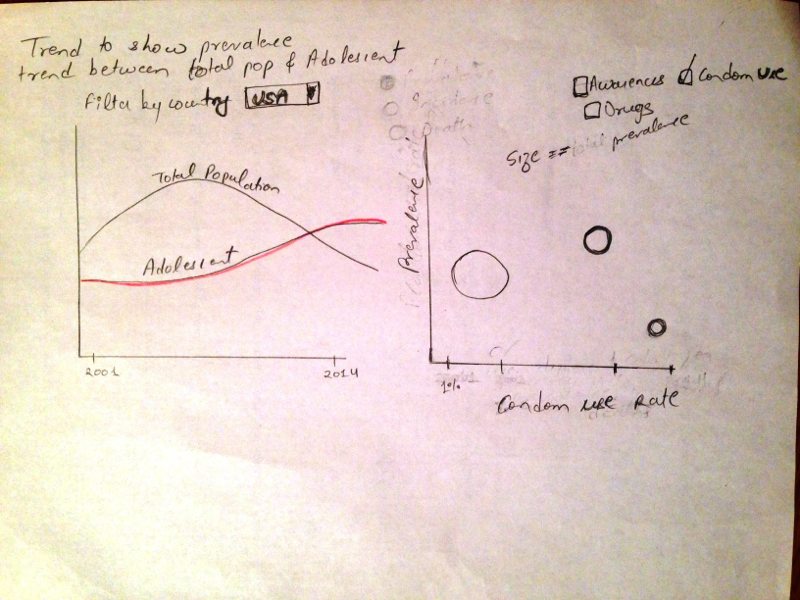 Trend to show prevalence
trend between total pop & Adolescent
Filter by country USA
Total Population
Adolescent
2001
2014
Awareness
Condom use
Drugs
Size == total prevalence
Prevalence
1%
Condom use Rate